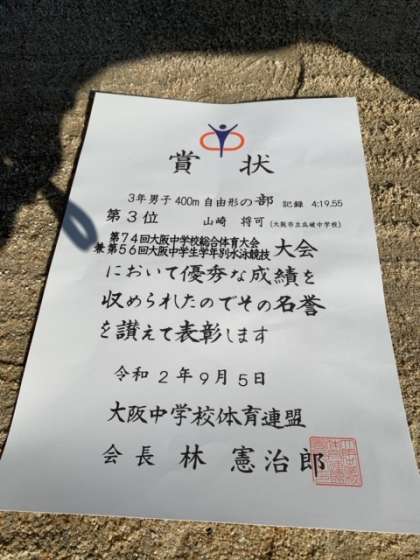 賞状
3年男子 400m 自由形の部 記録 4:19.55
第3位 山崎 将可 (大阪市立高崚中学校)
第74回大阪中学校総合体育大会
兼第56回大阪中学生学年別水泳競技 大会
において優秀な成績を
収められたのでその名誉
を讃えて表彰します
令和2年9月5日
大阪中学校体育連盟
会長 林 憲治郎